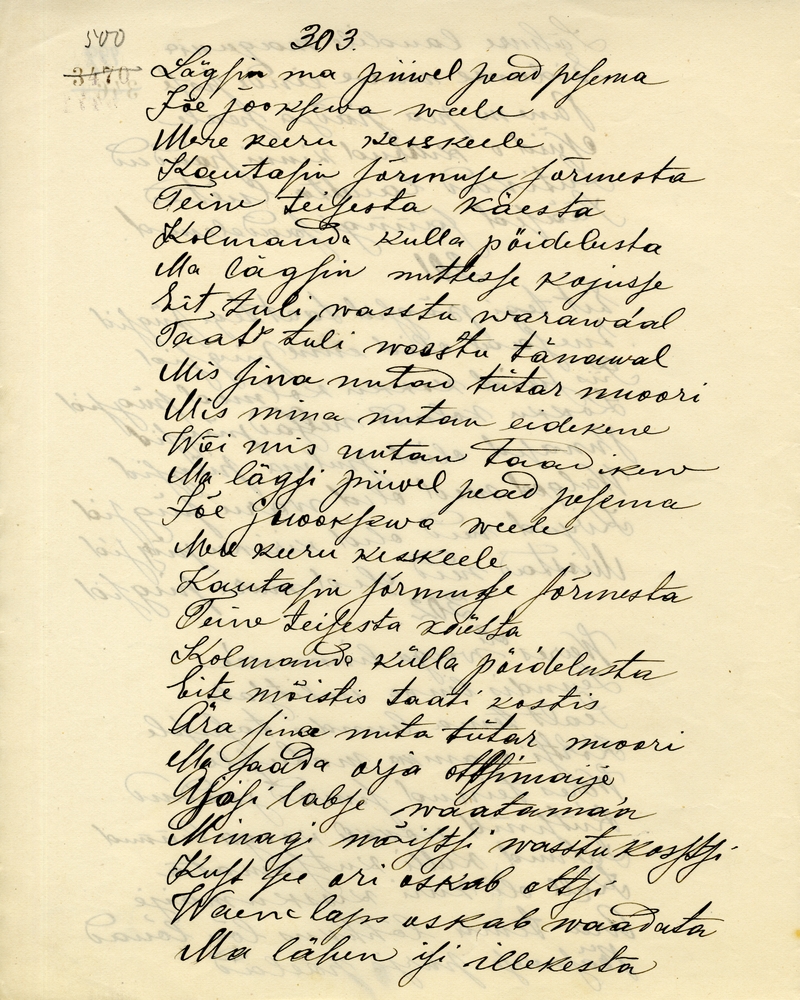 500
303.
3470
Lägsin ma püwel pead pesema
Jõe jooksewa weele
Mere keeru kesskeele
Kautasin sõrmuse sõrmesta
Teine teisesta käesta
Kolmanda kulla pöidelusta
Ma lägsin nuttesse kojusse
Eit tuli wasstu warawaal
Taat tuli wasstu tänawal
Mis sina nutad tütar nuoori
Mis mina nutan eidekene
Wõi mis nutan taadikene
Ma lägsi püwel pead pesema
Jõe juooksewa weele
Mere keeru kesskeele
Kautasin sõrmuse sõrmesta
Teine teisesta käesta
Kolmanda külla pöidelusta
Eite mõistis taati kostis
Ära sina nuta tütar nuoori
Ma saada orja ottsimaije
Ajasi labse waatama'a
Minagi mõistsi wasstu kosstsi
Kust see ori oskab ottsi
Waene laps oskab waadata
Ma lähen isi illekesta